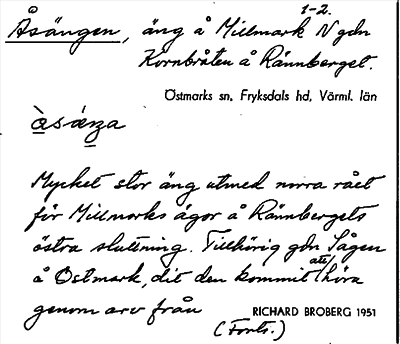 1-2.
Åsängen, äng å Millmark N gdn
Kornbråten å Rännberget.
Östmarks sn, Fryksdals hd, Värml. län
Mycket stor äng utmed norra rået
för Millmarks ägor å Rännbergets
östra sluttning. Tillhörig gdn Sågen
å Östmark, dit den kommit att höra
genom arv från RICHARD BROBERG 1951
(Forts.)